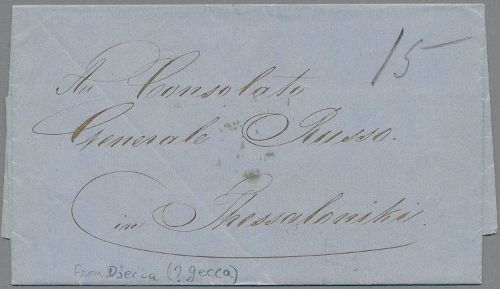 15
Al Consolato
Generale Russo.
in Thessaloniki.
From Djecca (? gecca)